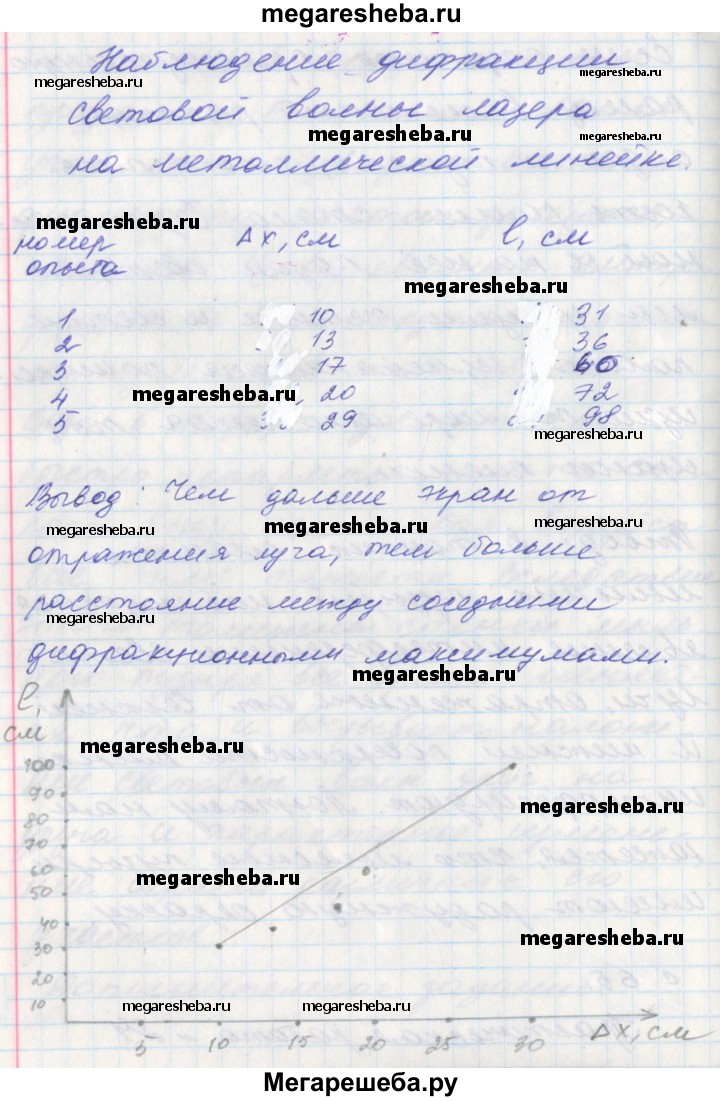 megaresheba.ru
Наблюдение дифракции
megaresheba.ru megaresheba.ru
световой волны лазера
megaresheba.ru
на металлической линейке.
megaresheba.ru
номер Δx, см l, см
опыта
megaresheba.ru
1 10 31
2 13 36
3 17
megaresheba.ru
4 20 72
5 29 98
megaresheba.ru
Вывод: Чем дальше экран от
megaresheba.ru megaresheba.ru megaresheba.ru
отражения луча, тем больше
расстояние между соседними
megaresheba.ru
дифракционными максимумами.
megaresheba.ru
l,
см
megaresheba.ru
100
90
megaresheba.ru
80
70
60
megaresheba.ru
50
40
megaresheba.ru
30
20
10
megaresheba.ru megaresheba.ru
5 10 15 20 25 30 Δx, см
Мегарешеба.ру